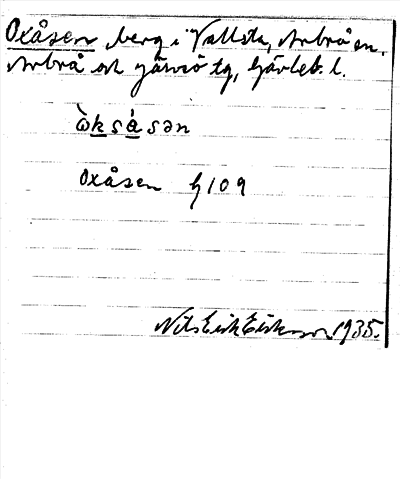 Oxåsen berg i Vallsta, Arbrå sn.
Arbrå och Järvsö tg, Gävleb. l.
ὼksåsən
Oxåsen G 109
Nils Erik Eriksson 1935.